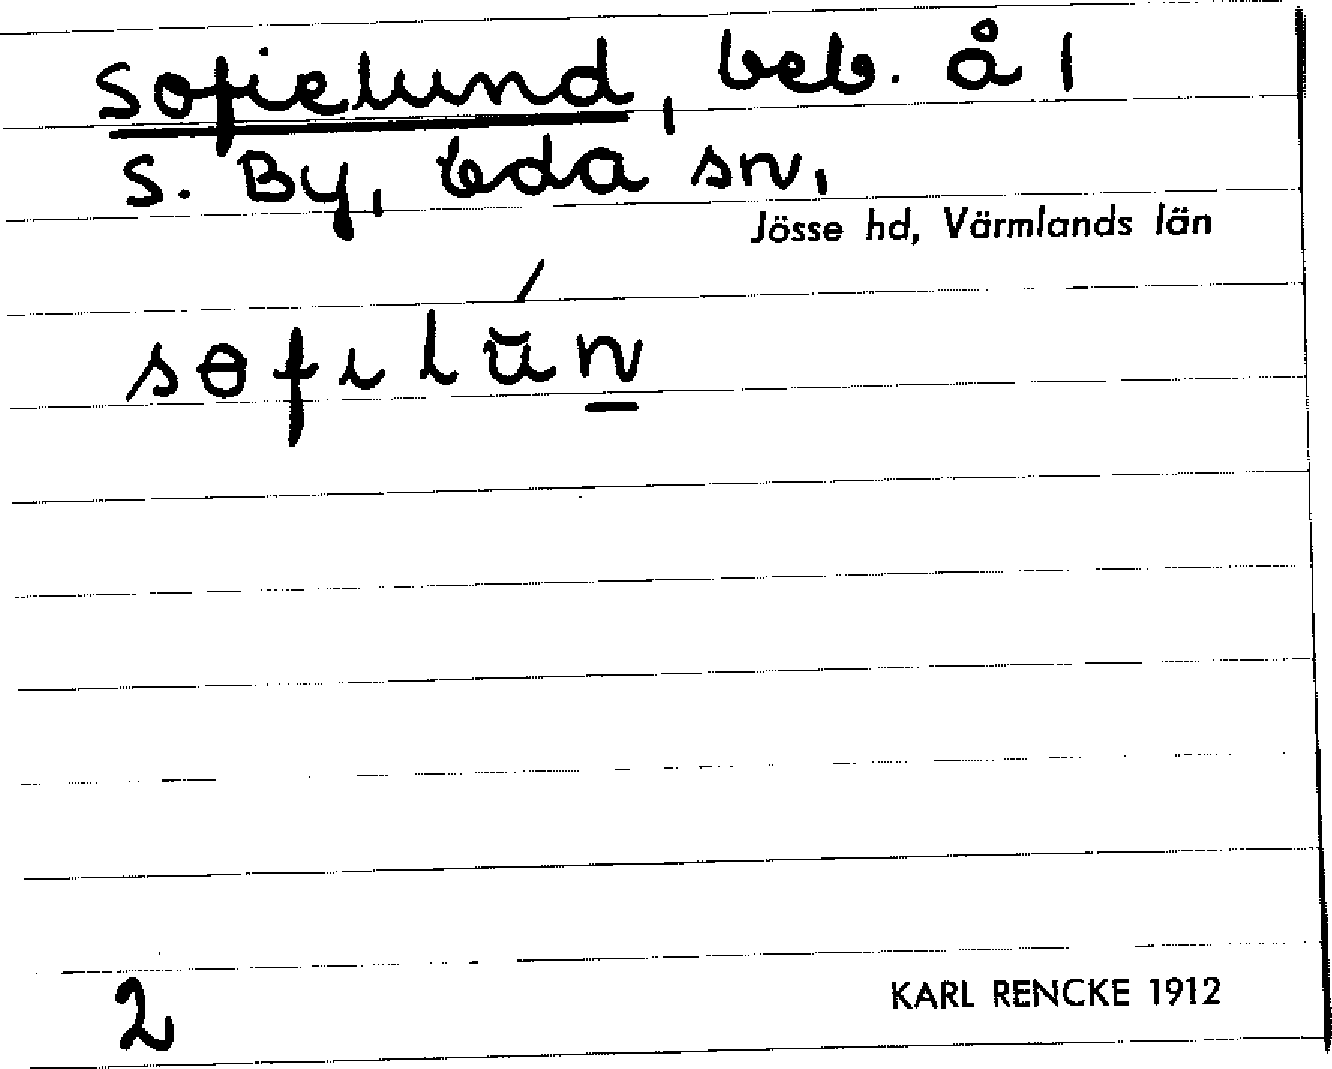 Sofielund, beb. å 1
S. By, Eda sn,
Jösse hd, Värmlands län
sɵfilu̇́n̲
2
KARL RENCKE 1912